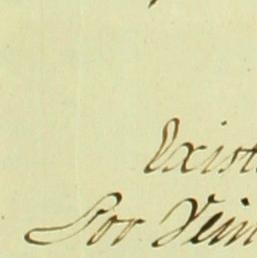 Exist
Por Vein